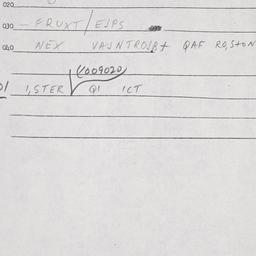 020
030 - FRUXT/EJPS
040 NEX VAJNTROJB+ QAF RO,STON
(009020)
01 1,STER QI ICT